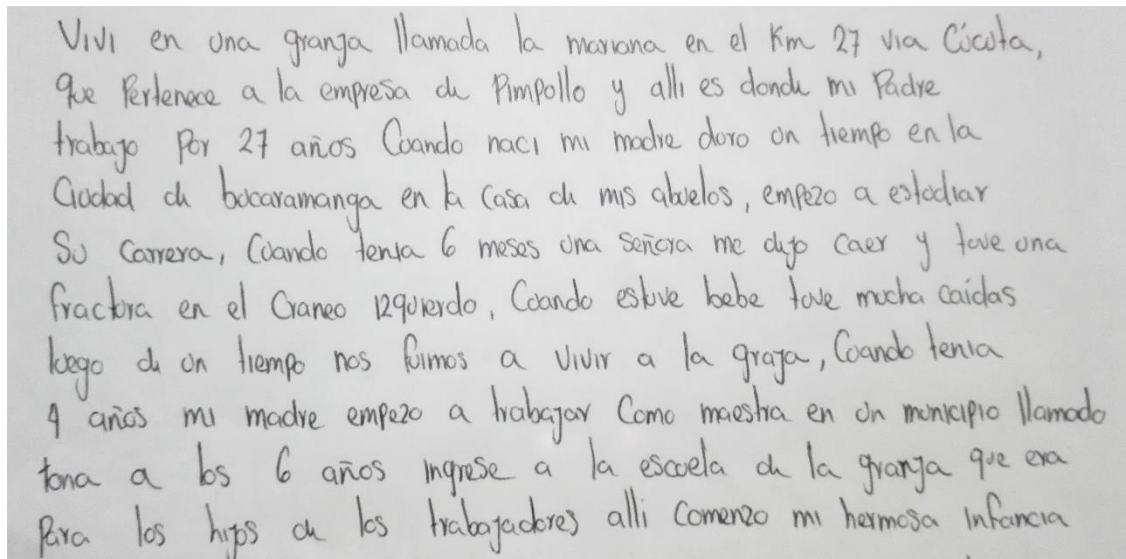 Vivi en una granja llamada la mariana en el Km 27 via Cúcuta,
que Pertenece a la empresa de Pimpollo y alli es donde mi Padre
trabajo Por 27 años Cuando naci mi madre duro un tiempo en la
Ciudad de bucaramanga en la Casa de mis abuelos, empezo a estudiar
Su Carrera, Cuando tenia 6 meses una Señora me dejo Caer y tuve una
fractura en el Craneo izquierdo, Cuando estuve bebe tuve mucha caídas
luego de un tiempo nos fuimos a vivir a la graja, Cuando tenia
4 años mi madre empezo a trabajar Como maestra en un municipio llamado
tona a los 6 años ingrese a la escuela de la granja que era
Para los hijos de los trabajadores alli Comenzo mi hermosa infancia